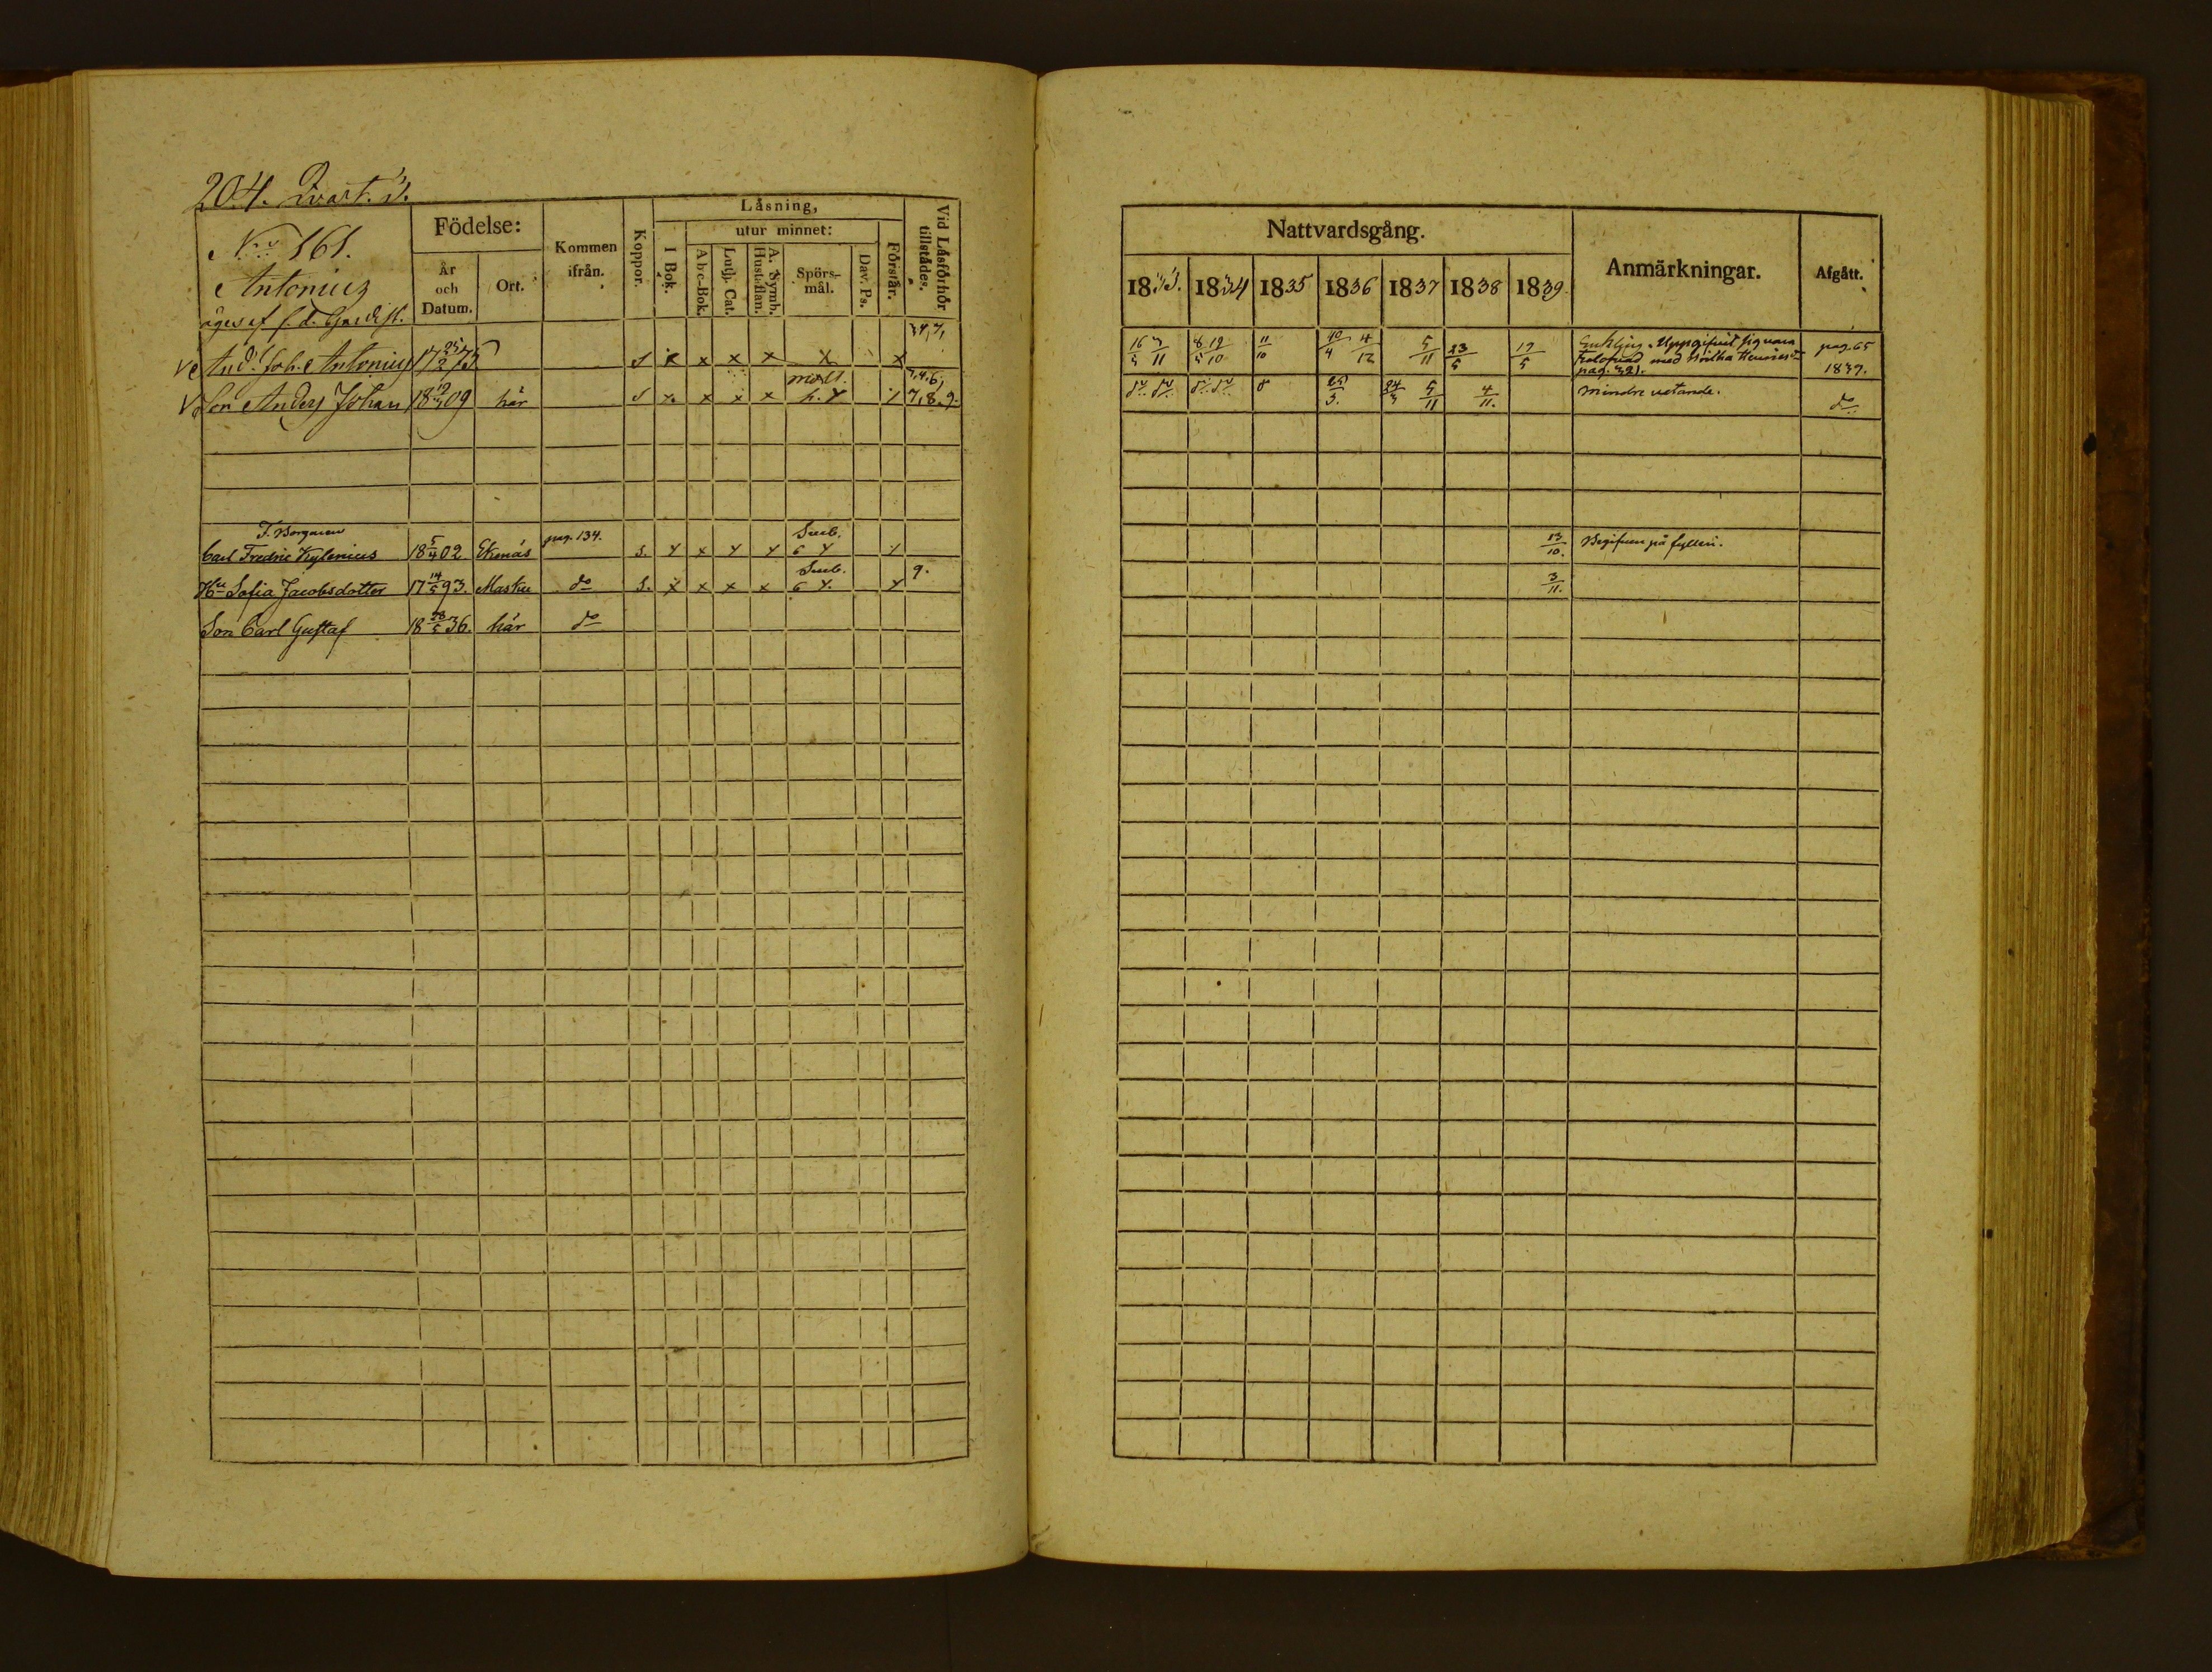 204. Qvart. 3.
No 161.
Antonius
äges af f. d. Gardist.
Födelse:
År och Datum.
Ort.
Kommen ifrån.
Koppor.
Läsning,
I Bok.
utur minnet:
Abc-Bok.
Luth. Cat.
A. Symb. Hust. flan.
Spörs-mål.
Dav. Ps.
Förstår.
Vid Läsförhör tillstädes.
And. Joh. Antonius 17 25/2 75 s x x x x x x 3,4,7,
Son Anders Johan 18 19/3 09 här s x x x x h. x 3,4,6, 7,8,9.
Carl Fredric Kylenius 18 5/4 02 Ekenäs pag. 134. s. x x x x Sueb. 6 x x
Hu Sofia Jacobsdotter 17 14/5 93. Masku do s. x x x x Sueb. 6 x. x 9.
Son Carl Gustaf 18 28/5 36. här do
Nattvardsgång.
1833. 1834 1835 1836 1837 1838 1839.
Anmärkningar.
Afgått.
16/3 3/11 8/5 19/10 11/10 10/4 4/12 5/11 23/5 19/5 Enkling. Uppgifvit sig vara
Trolofvad med
pag. 321.
pag. 65
1839.
do do do do 25/3. 24/3 5/11 4/11. mindre vetande. do
13/10. Begifven på fylleri.
3/11.